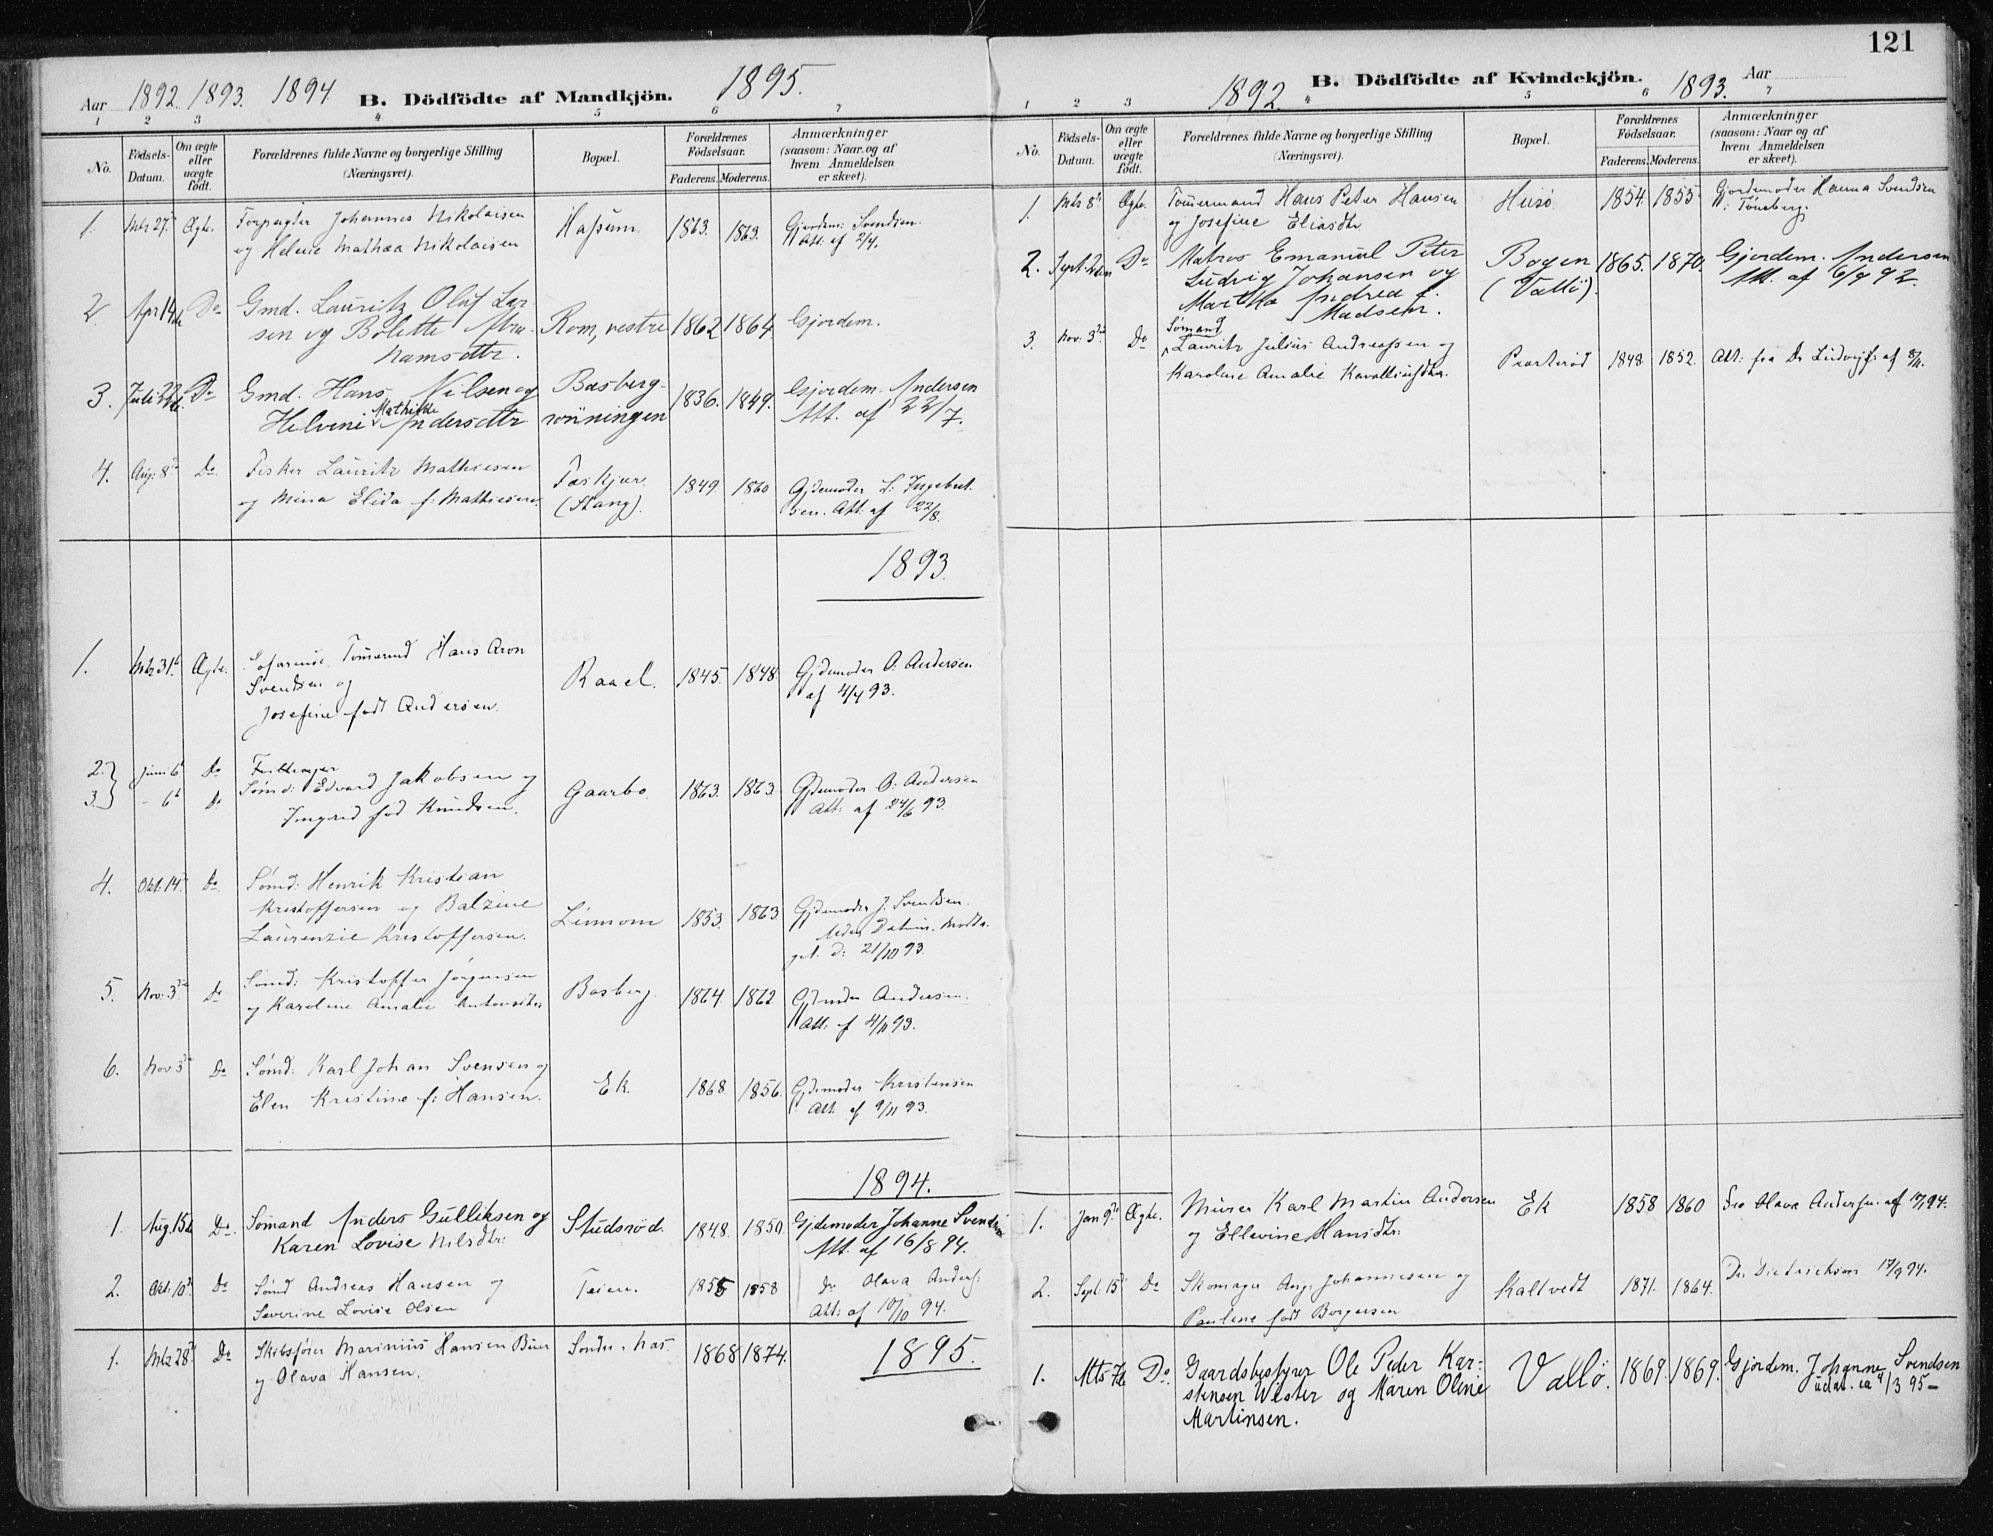 121
Aar 1892. 1893. 1894. B. Dödfödte af Mandkjön. 1895.
1 2 3 4 5 6 7
No. Födsels-Datum. Om ægte eller uægte födt. Forældrenes fulde Navne og borgerlige Stilling (Næringsvei). Bopæl. Forældrenes Födselsaar. Faderens. Moderens. Anmærkninger (saasom: Naar og af hvem Anmeldelsen er skeet).
1. Mts 27 Ægte. Forpagter Johannes Nikolaisen Hassum. 1863. 1863. Gjordem: Svendsen.
og Helene Mathea Nikolaisen Att. af 2/4.
2 Apr 14de Do Gmd. Lauritz Olaf Lar-
sen og Bolette Abra- Rom, vestre 1862 1864 Gjordem.
hamsdttr.
3. Juli 22de Do Gmd. Hans Nilsen og Basberg- 1836. 1849. Gjordem. Andersen
Helvine Mathilde Andersdttr rönningen Att. af 22/7.
4. Aug: 8de Do Fisker Lauritz Mathiesen
og Mina Elida f: Mathiesen. (Stang). 1849. 1860 Gjdemoder L: Ingebret-
sen. Att: af 22/8.
1893.
1. Mts 31te Ægte. Tømermd Hans Aron
Svendsen og Raael. 1845. 1848. Gjdemoder O. Andersen
Josefine födt Andersen. af 4/4 93.
2. Juni 6te Do
3. - 6te Do Sømd: Edvard Jakobsen og Gaarbo 1863. 1863. Gjdemoder O. Andersen
Ingrid född Knudsen. Att: af 24/6 93.
4. Okt: 14de Do Sømd: Henrik Kristian
Kristoffersen og Balzine Linnom 1853. 1863 Gjdemoder J. Svendsen.
Laurenzie Kristoffersen. Uden Datum. Modta-
get d: 21/10 93.
5. Nov: 3die Do Sømd: Kristoffer Jørgensen Basberg. 1864 1862 Gjdmoder Andersen.
og Karoline Amalie Antonsdtr Att. af 4/11 93.
6. Nov 3die Do Sømd: Karl Johan Svensen og Ek. 1868 1856. Gjdemoder Kristensen
Elen Kristine f: Hansen. Att. af 9/11 93.
1894.
1. Aug. 15de Do. Sömand Anders Gulliksen og Studsröd. 1848. 1850. Gjdemoder Johanne Svendsen
Karen Lovise Nilsdtr: Att. af 16/8 94.
2. Okt: 10de Do Sømd Andreas Hansen og Teien. 1855 1858 do Olava Anders:
Severine Lovise Olsen Att: af 10/10 94.
1. Mts 28de Do Skibsfører Marinius Hansen Buer Søndre Næs 1868 1874. 1895.
og Olava Hansen.
1892 B. Dödfödte af Kvindekjön. 1893. Aar
1 2 3 4 5 6 7
No. Födsels-Datum. Om ægte eller uægte födt. Forældrenes fulde Navne og borgerlige Stilling (Næringsvei). Bopæl. Forældrenes Födselsaar. Faderens. Moderens. Anmærkninger (saasom: Naar og af hvem Anmeldelsen er skeet).
1. Mts 8de Ægte. Tømermand Hans Peter Hansen Husö 1854. 1855. Gjordemoder Hanna Svendsen
og Josefine Eliasdtr. i Tönsberg.
2. Sept. 2den Do Matros Emanuel Peter Bogen 1865. 1870. Gjordem. Andersen
Ludvig Johansen og (Vallö). Att. af 6/9 92.
Martha Andrea f.
Madsen.
3. Nov: 3die Do Sømand
Lauritz Julius Andreassen og Præsterød 1848 1852. Att: fra Dr Ludvigs: af 8/11.
Karoline Amalie
1. Jan 9de Ægte. Murer Karl Martin Andersen Ek 1858 1860 Fra Olava Anders: af
og Ellevine Hansdtr:
2. Sept: 15de Do Skomager Aug. Johannesen og Kaltvedt 1871. 1864. Dr. Diedrichson 17/9 94.
Pauline født Borgersen
1. Mts 7de Do. Gaardsbestyrer Ole Peder Kar- Vallö. 1869. 1869. Gjordem. Johanne Svendsen
stensen Wester og Maren Oline 95-
Martinsen.